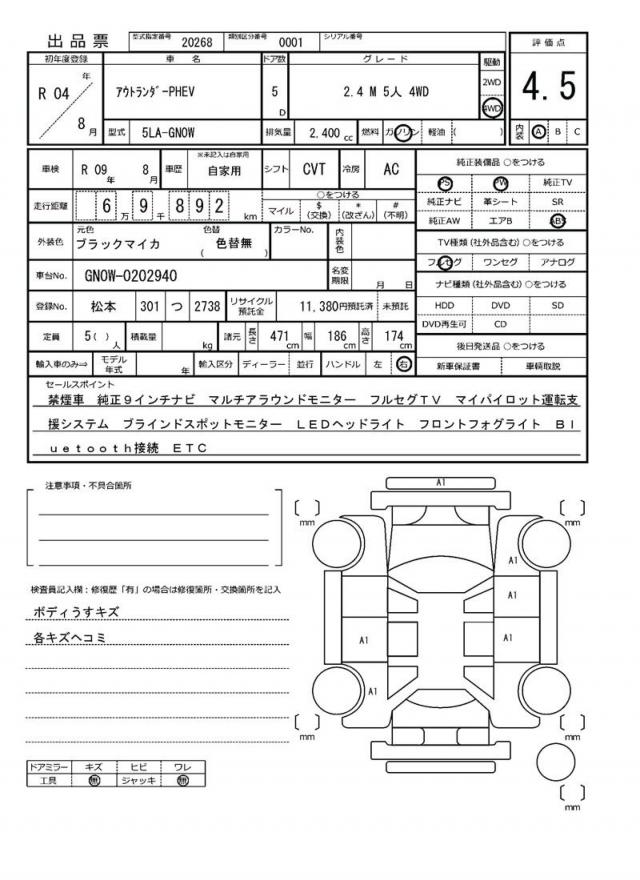 出品票 型式指定番号 20268 類別区分番号 0001 シリアル番号
初年度登録 車名 ドア数 グレード 駆動 評価点
R 04 年 8 月 ｱｳﾄﾗﾝﾀﾞｰPHEV 5 D 2.4 M 5人 4WD 2WD 4WD 4.5
型式 5LA-GN0W 排気量 2,400 cc 燃料 ガソリン 軽油 ( ) 内装 A B C
車検 R 09 年 8 月 車歴 ※未記入は自家用 自家用 シフト CVT 冷房 AC
走行距離 6 万 9 千 8 9 2 km ○をつける
マイル $ (交換) * (改ざん) # (不明)
外装色 元色 ブラックマイカ 色替 ( 色替無 ) カラーNo. 内装色
車台No. GN0W-0202940 名変期限 月 日
登録No. 松本 301 つ 2738 リサイクル預託金 11,380円預託済 未預託
定員 5( ) 人 積載量 kg 諸元 長さ 471 cm 幅 186 cm 高さ 174 cm
輸入車のみ⇒ モデル年式 年 輸入区分 ディーラー 並行 ハンドル 左 右
純正装備品 ○をつける
PS PW 純正TV
純正ナビ 革シート SR
純正AW エアB ABS
TV種類 (社外品含む) ○をつける
フルセグ ワンセグ アナログ
ナビ種類 (社外品含む) ○をつける
HDD DVD SD
DVD再生可 CD
後日発送品 ○をつける
新車保証書 車輌取説
セールスポイント
禁煙車 純正９インチナビ マルチアラウンドモニター フルセグＴＶ マイパイロット運転支
援システム ブラインドスポットモニター ＬＥＤヘッドライト フロントフォグライト Ｂｌ
ｕｅｔｏｏｔｈ接続 ＥＴＣ
注意事項・不具合箇所
検査員記入欄：修復歴「有」の場合は修復箇所・交換箇所を記入
ボディうすキズ
各キズヘコミ
ドアミラー キズ ヒビ ワレ
工具 無 ジャッキ 無
A1
mm mm
A1
A1
A1 A1
A1
mm mm
mm